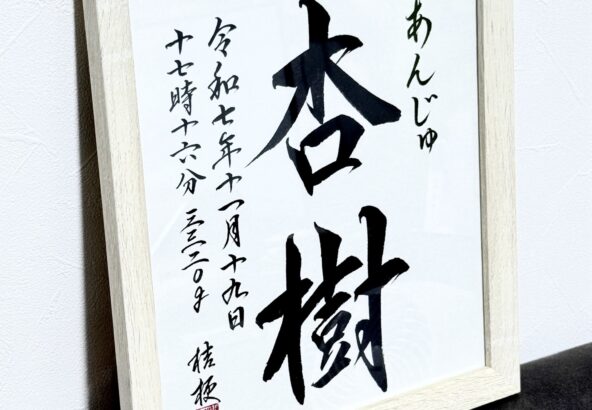 あんじゅ
杏樹
令和七年十一月十九日
十七時十六分 三三二〇g
桔梗